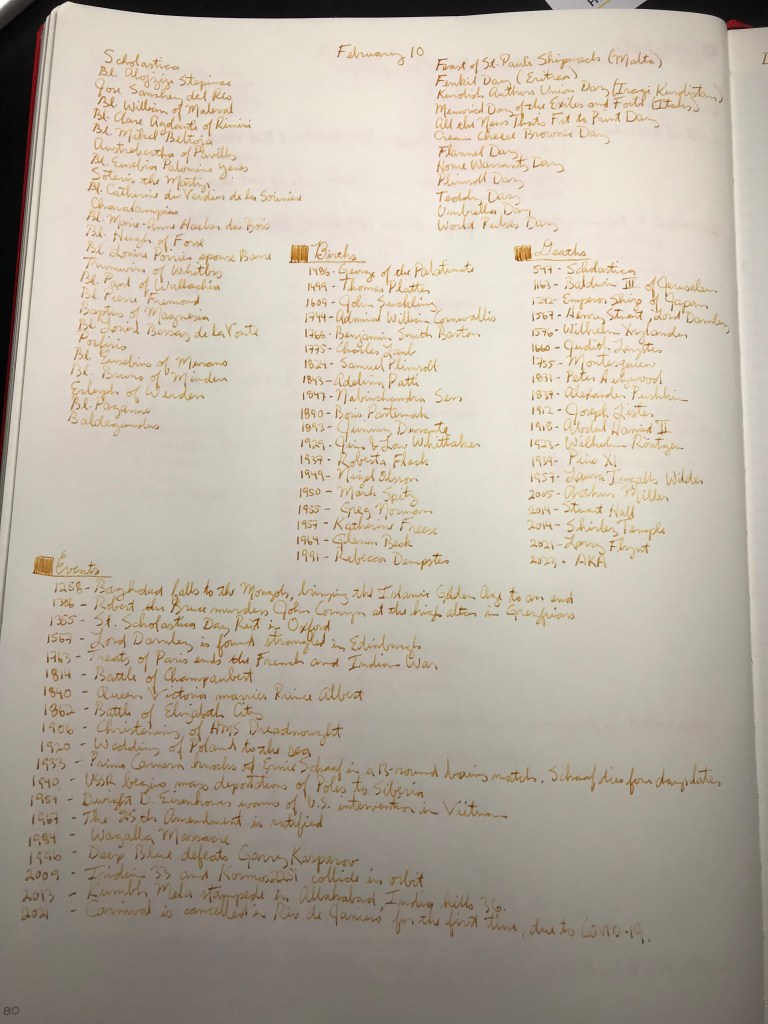 February 10
Scholastica
Bl. Alojzije Stepinac
Jose Sanchez del Rio
Bl. William of Maleval
Bl. Clare Agolante of Rimini
Bl. Mikel Beltoja
Austrebertha of Pavilly
Bl. Eusebia Palomino Yenes
Soteris the Martyr
Bl. Catherine du Verdier de la Sorinière
Charalampias
Bl. Marie-Anne Hacher du Bois
Bl. Hugh of Fosse
Bl. Louise Poirier epouse Barre
Trumwin of Whitby
Bl. Paul of Wallachia
Bl. Pierre Fremond
Baptus of Magnesia
Bl. Louise Bessay de la Voute
Porfirio
Bl. Eusebius of Murano
Bl. Bruno of Minden
Erluph of Werden
Bl. Paganus
Baldegundus
Feast of St. Paul's Shipwreck (Malta)
Fenkil Day (Eritrea)
Kurdish Authors Union Day (Iraqi Kurdistan)
Memorial Day of the Exiles and Foibe (Italy)
All the News That's Fit to Print Day
Cream Cheese Brownie Day
Flannel Day
Home Warranty Day
Plimsoll Day
Teddy Day
Umbrella Day
World Pulses Day
Births
1486 - George of the Palatinate
1499 - Thomas Platter
1609 - John Suckling
1744 - Admiral William Cornwallis
1766 - Benjamin Smith Barton
1775 - Charles Lamb
1824 - Samuel Plimsoll
1843 - Adelina Patti
1847 - Nabinchandra Sen
1890 - Boris Pasternak
1893 - Jimmy Durante
1929 - Jim & Lou Whittaker
1937 - Roberta Flack
1949 - Nigel Olsson
1950 - Mark Spitz
1955 - Greg Norman
1957 - Katherine Freese
1964 - Glenn Beck
1991 - Rebecca Dempster
Deaths
547 - Scholastica
1163 - Baldwin III of Jerusalem
1242 - Emperor Shijo of Japan
1567 - Henry Stuart, Lord Darnley
1576 - Wilhelm Xylander
1660 - Judith Leyster
1755 - Montesquieu
1831 - Peter Heywood
1837 - Alexander Pushkin
1912 - Joseph Lister
1918 - Abdul Hamid II
1923 - Wilhelm Röntgen
1939 - Pius XI
1957 - Laura Ingalls Wilder
2005 - Arthur Miller
2014 - Stuart Hall
2014 - Shirley Temple
2021 - Larry Flynt
2023 - AKA
Events
1258 - Baghdad falls to the Mongols, bringing the Islamic Golden Age to an end
1306 - Robert the Bruce murders John Comyn at the high alter in Greyfriars
1355 - St. Scholastica Day Riot in Oxford
1567 - Lord Darnley is found strangled in Edinburgh
1763 - Treaty of Paris ends the French and Indian War
1814 - Battle of Champaubert
1840 - Queen Victoria marries Prince Albert
1862 - Battle of Elizabeth City
1906 - Christening of HMS Dreadnought
1920 - Wedding of Poland to the sea
1933 - Primo Carnera knocks of Ernie Schaaf in a 13-round boxing match. Schaaf dies four days later
1940 - USSR begins mass deportations of Poles to Siberia
1954 - Dwight D. Eisenhower warns of U.S. intervention in Vietnam
1967 - The 25th Amendment is ratified
1984 - Wagalla Massacre
1996 - Deep Blue defeats Garry Kasparov
2009 - Iridium 33 and Kosmos 2251 collide in orbit
2013 - Kumbh Mela stampede in Allahabad, India kills 36.
2021 - Carnival is cancelled in Rio de Janeiro for the first time, due to COVID-19.
80